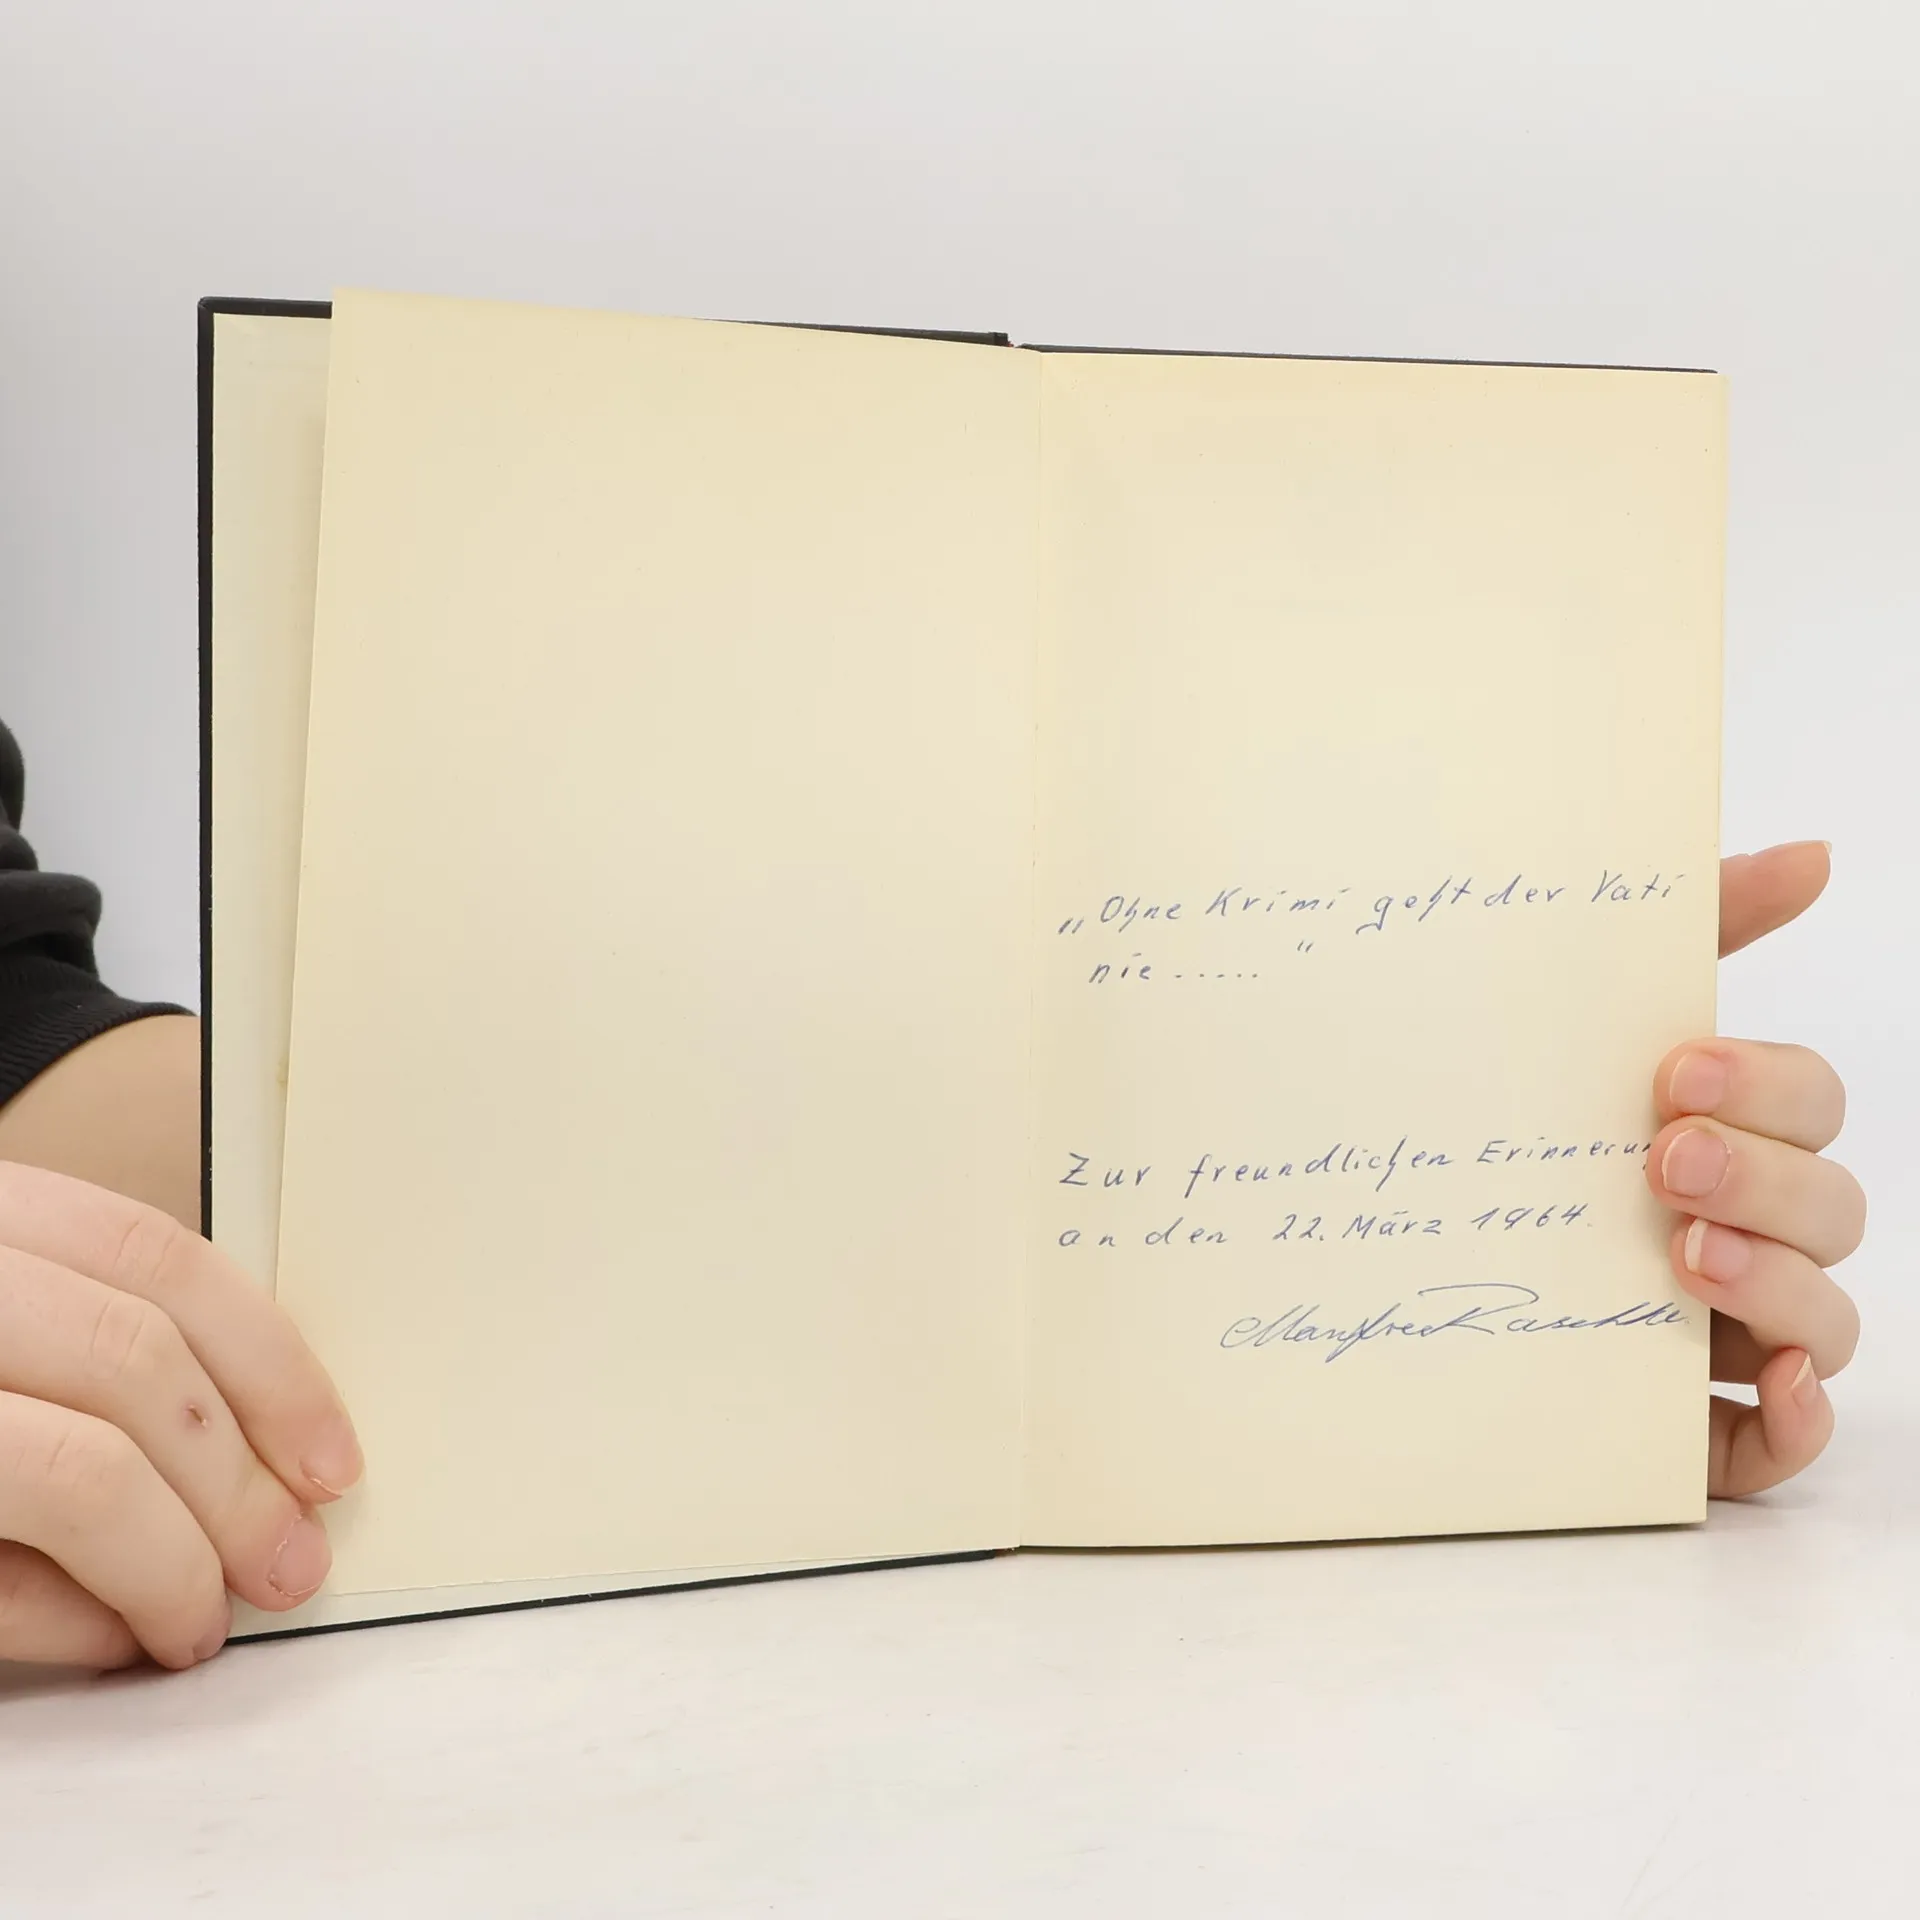 „Ohne Krimi geht der Vati
nie ....."
Zur freundlichen Erinnerun
an den 22. März 1964.
Manfred Raschke.